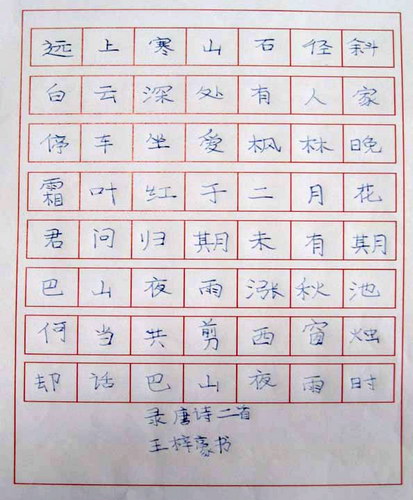 远上寒山石径斜
白云深处有人家
停车坐爱枫林晚
霜叶红于二月花
君问归期未有期
巴山夜雨涨秋池
何当共剪西窗烛
却话巴山夜雨时
录唐诗二首
王梓豪书